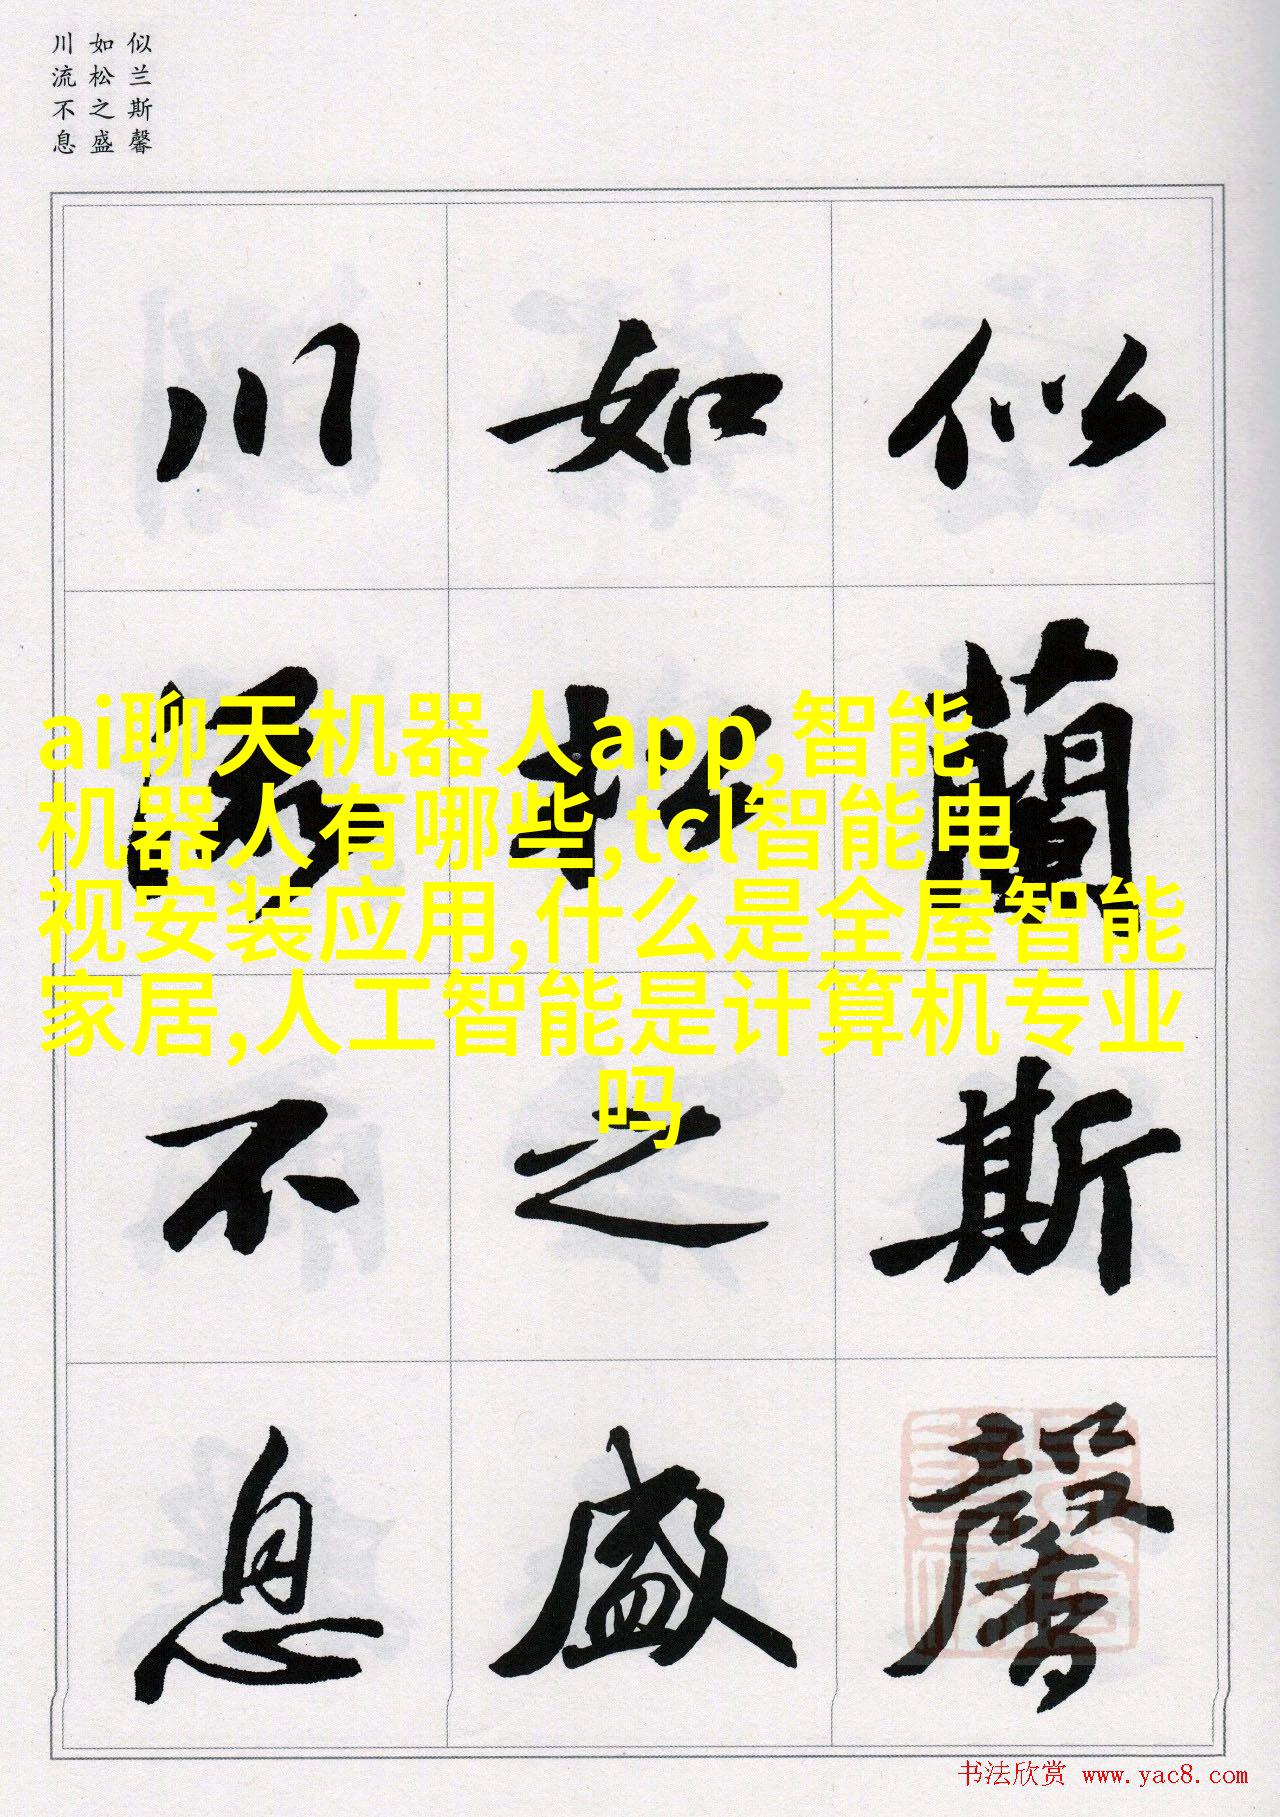 似兰斯馨
如松之盛
川流不息
似蘭斯馨
如松之盛
川流不息
ai聊天机器人app,智能
机器人有哪些,tcl智能电
视安装应用,什么是全屋智能
家居,人工智能是计算机专业
吗
书法欣赏 www.yac8.com